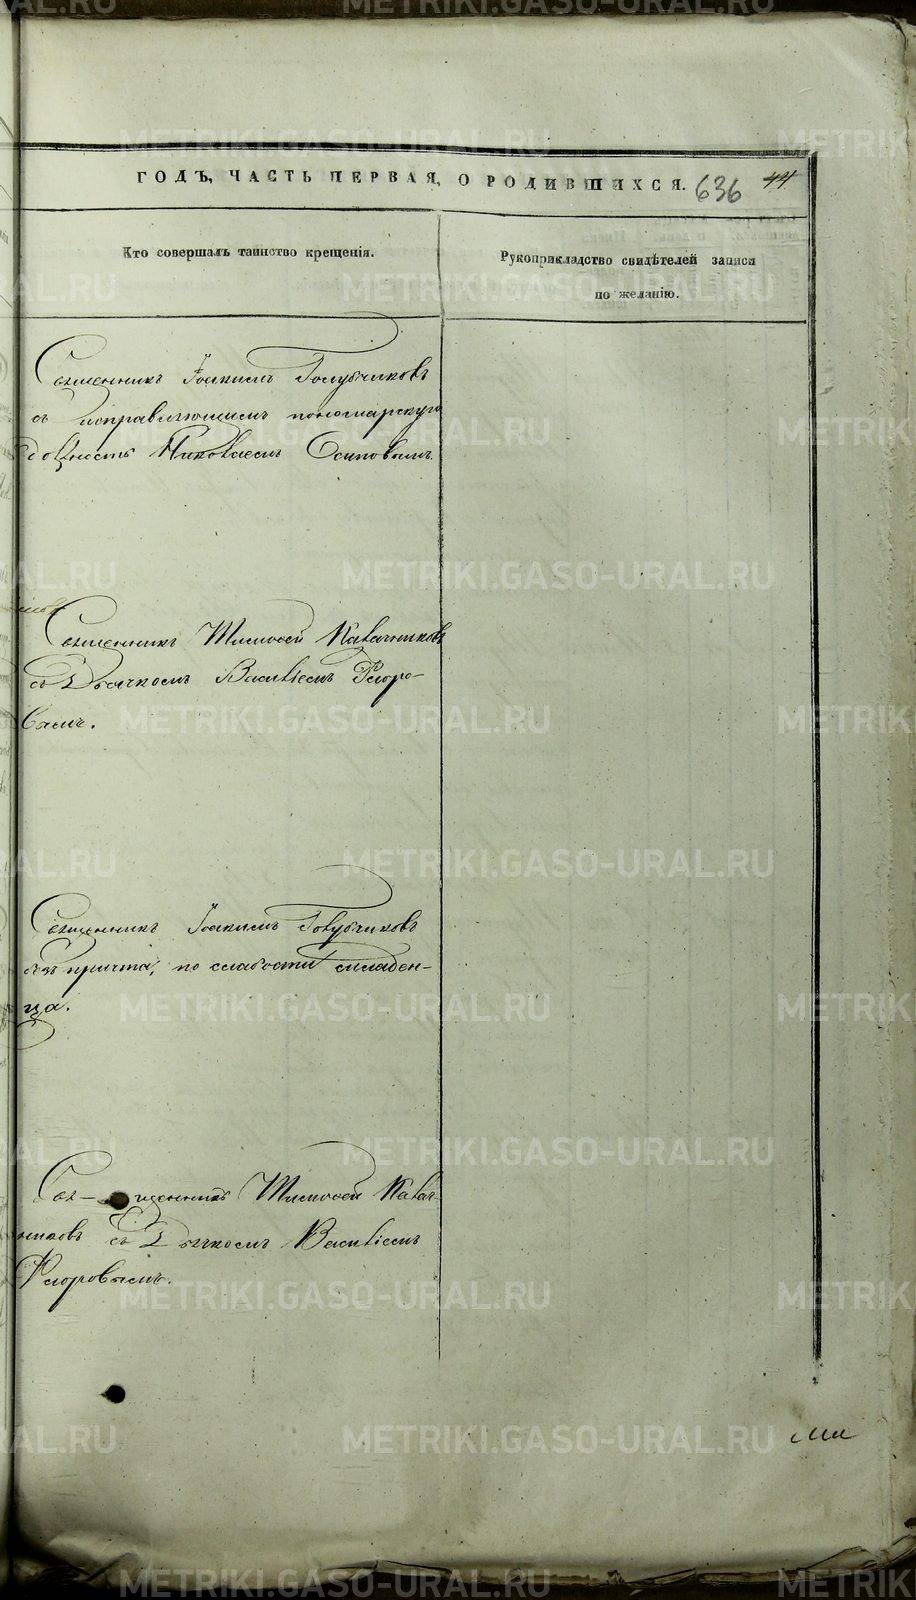 ГОДЪ, ЧАСТЬ ПЕРВАЯ, О РОДИВШИХСЯ. 636 44
Кто совершалъ таинство крещенія.
Рукоприкладство свидѣтелей записи
по желанію.
Священникъ Іоакимъ Голубчиковъ
съ исправляющимъ пономарскую
должность Николаемъ Осиповымъ.
Священникъ Тимоѳей Калачниковъ
съ Дьячкомъ Василіемъ Флоро-
вымъ.
Священникъ Іоакимъ Голубчиковъ
безъ причта, по слабости младен-
ца.
Свя- щенникъ Тимоѳей Калач-
никовъ съ Дьячкомъ Василіемъ
Флоровымъ.
METRIKI.GASO-URAL.RU